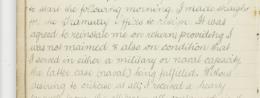 to start the following morning. I made straight
for the Tramway Offices to resign. It was
agreed to reinstate me on return, providing I
was not maimed & also on condition that
I served in either a military or naval capacity
the latter case (naval) being fulfilled. Without
desiring to enthuse at all, I received a hearty